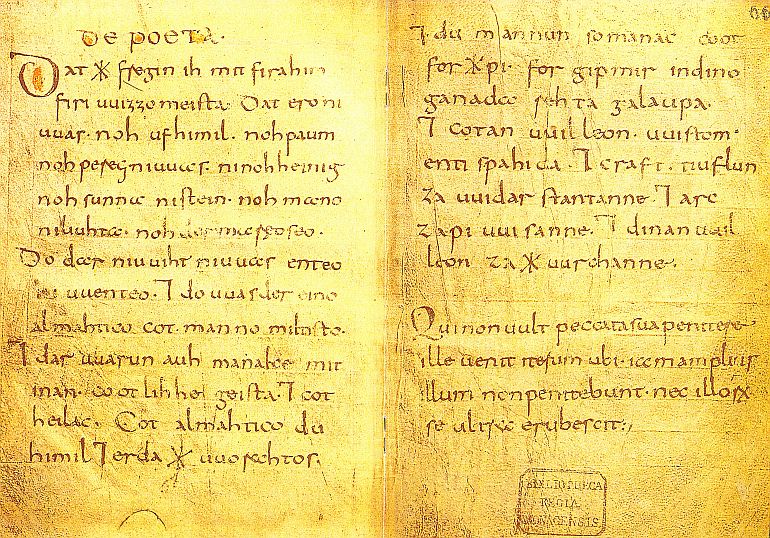 De POETA.
Dat ᚼ fregin ih mit firahim
firi uuizzo meista. Dat ero ni
uuas. noh ufhimil. noh paum
noh pereg ni uuas. ni nohheinig
noh sunna ni stein. noh mano
ni liuhta. noh der mareo seo.
Do dar niuuiht ni uuas enteo
ni uuenteo. ⁊ do uuas der eino
almahtico cot. manno miltisto.
⁊ dar uuarun auh manake mit
inan. cootlihhe geista. ⁊ cot
heilac. Cot almahtico du
himil ⁊ erda ᚼ uuorahtos.
⁊ du mannun so manac coot
for ᚼpi. for gipmir indino
ganada rehta galaupa.
⁊ cotan uuilleon. uuistom.
enti spahida. ⁊ craft. tiuflun
za uuidarstantanne. ⁊ arc
zapiuuisanne. ⁊ dinan uuil
leon za ᚼ uurchanne.
Qui non uult peccata sua penitere
ille uenit iterum ubi iam amplius
illum non penitebunt. nec illorum
se ultra erubescit:,
BIBLIOTHECA
REGIA
MONACENSIS